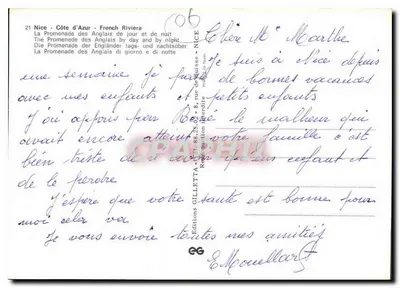 21 Nice - Côte d'Azur - French Riviera
La Promenade des Anglais de jour et de nuit
The Promenade des Anglais by day and by night
Die Promenade der Engländer tags- und nachtsüber
La Promenade des Anglais di giorno e di notte
06
Chère Me Marthe
Je suis à Nice depuis
une semaine je passe de bonnes vacances
avec mes enfants et petits enfants
J'ai appris par le malheur qui
avait encore atteint votre famille c'est
bien triste de avoir enfant et
de le perdre
J'espère que votre santé est bonne pour
moi cela va
Je vous envoie toutes mes amitiés
Editions GILLETTA - rue - NICE
Reproduction interdite
EG